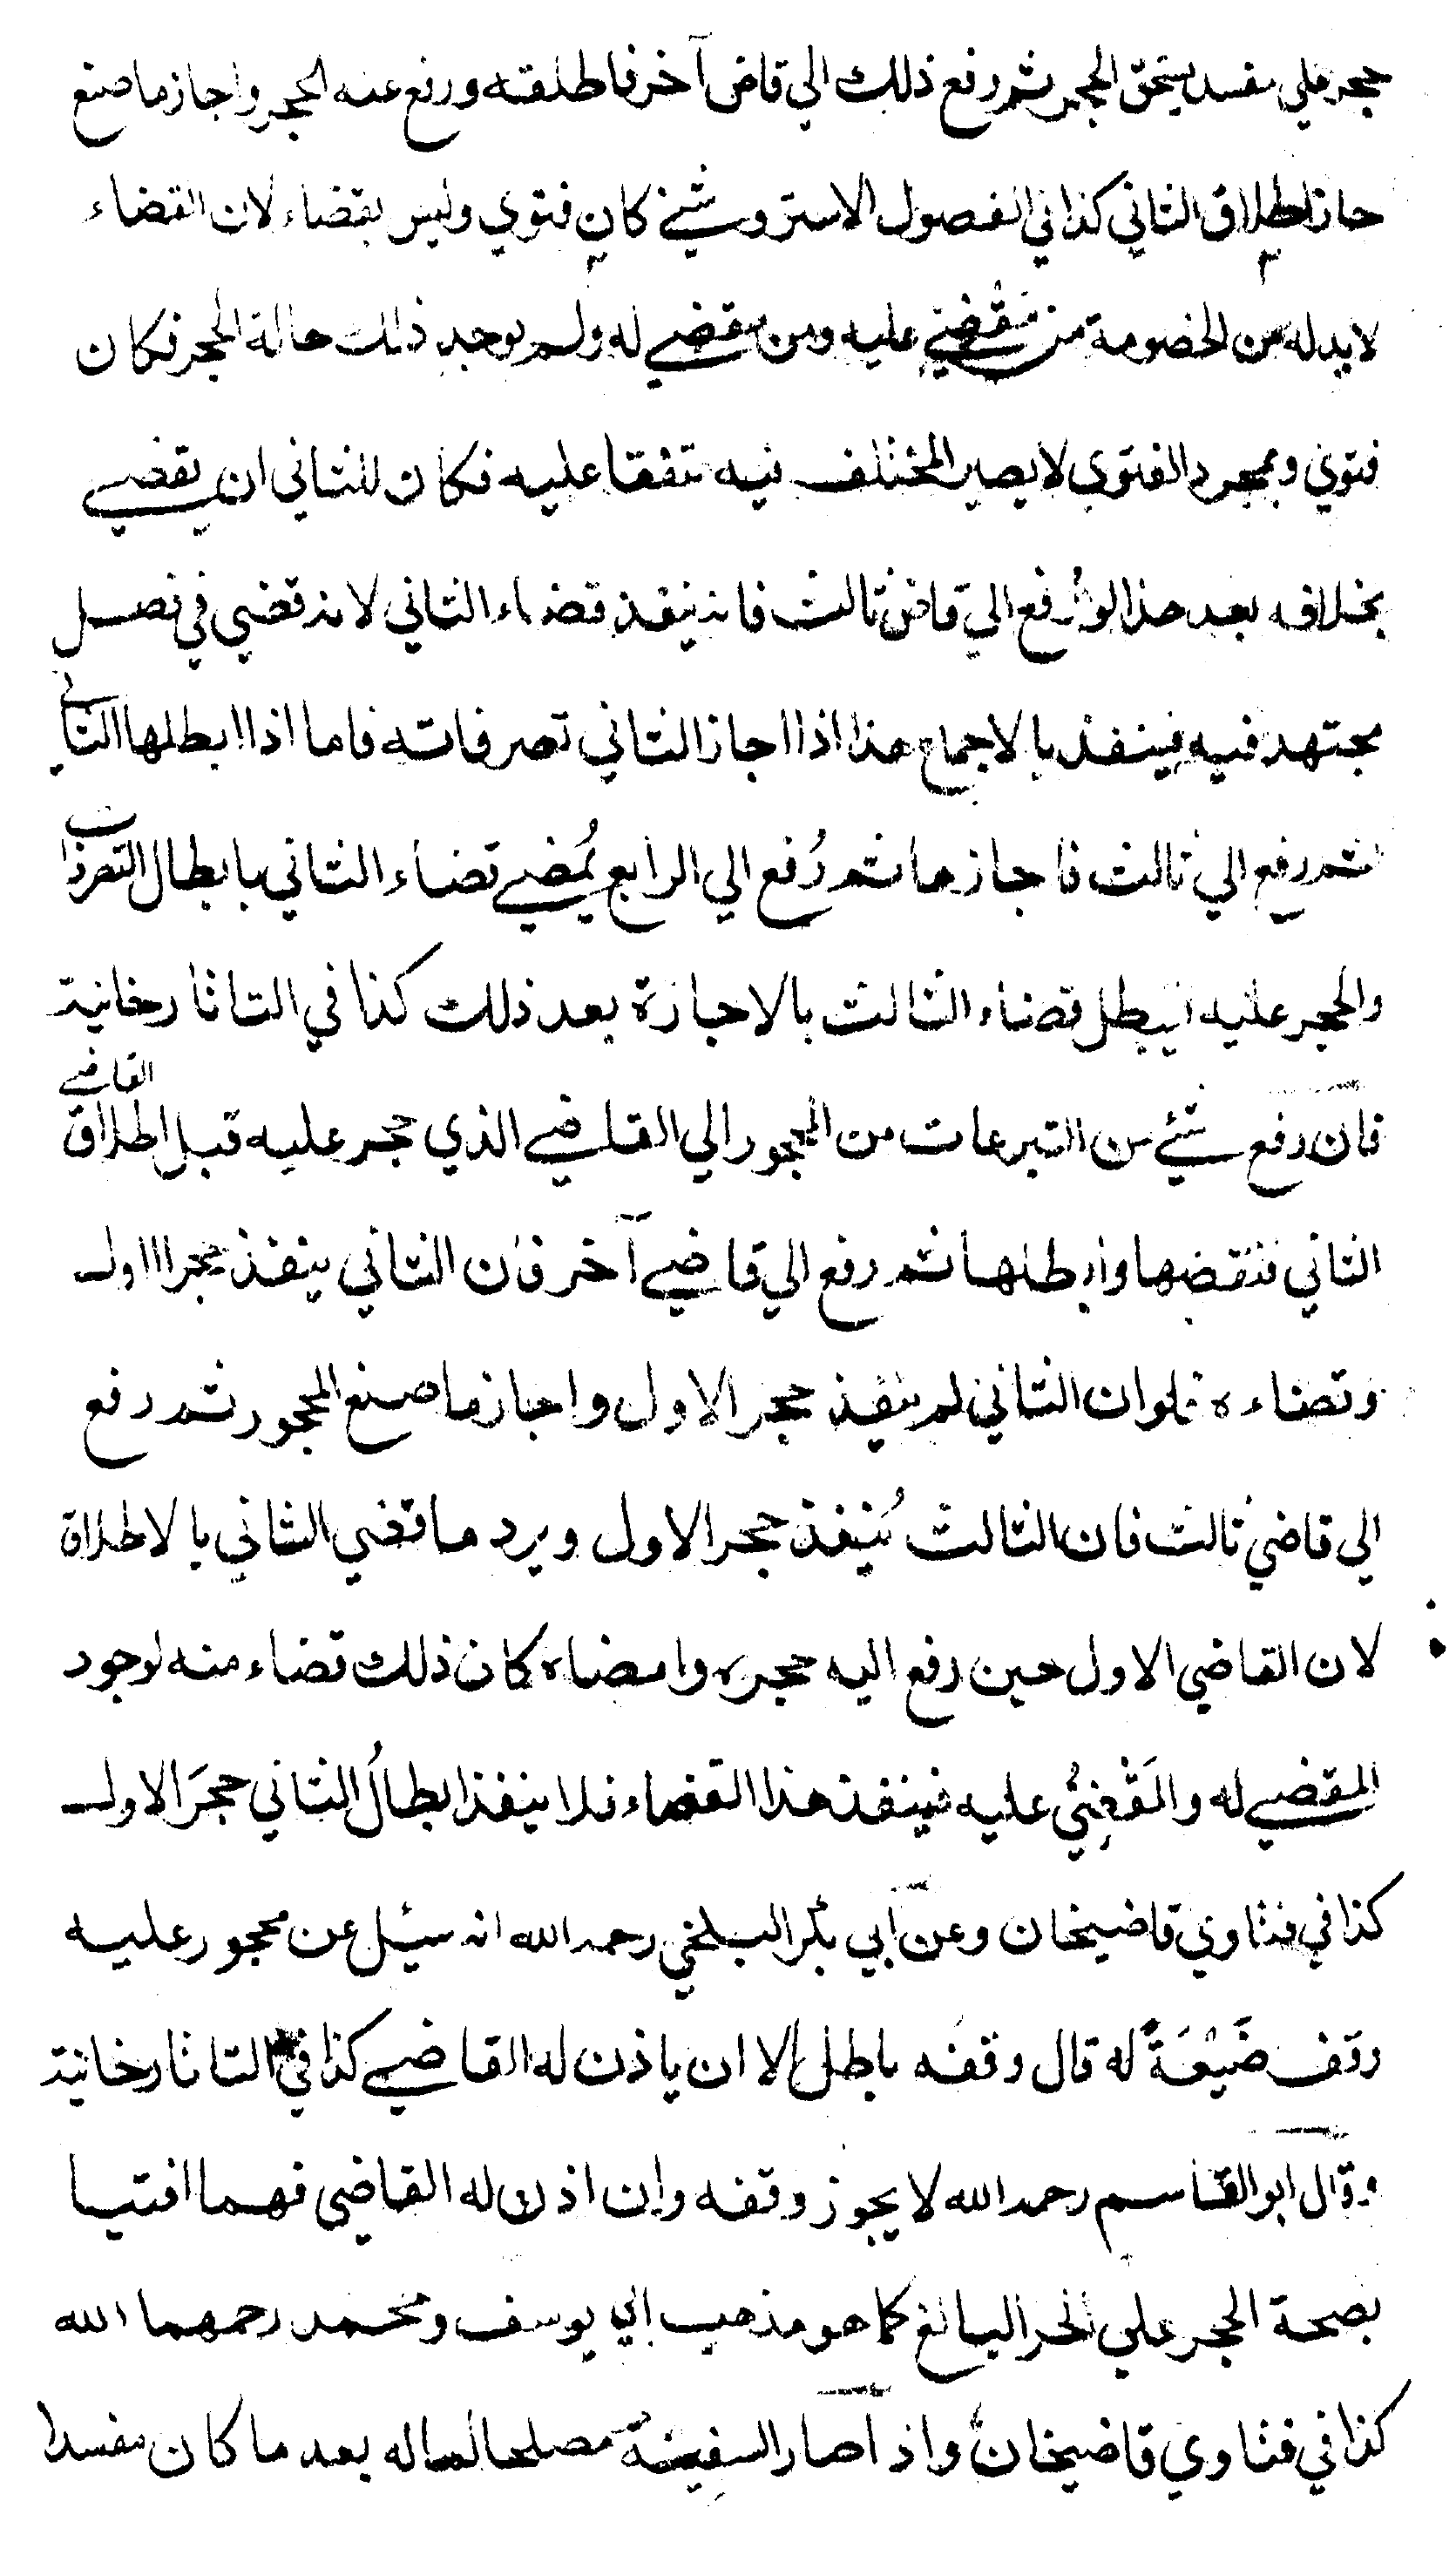 حجر علي مفسد يستحق الحجر ثم رفع ذلك الي قاض آخر فاطلقه ورفع عنه الحجر واجاز ما صنع
جاز اطلاق الثاني كذا في الفصول الاستروشني كان فتوي وليس بقضاء لان القضاء
لابد له من الخصومة من مقضي عليه ومن مقضي له ولم يوجد ذلك حالة الحجر فكان
فتوي وبمجرد الفتوي لا يصير المختلف فيه متفقا عليه فكان للثاني ان يقضي
بخلافه بعد هذا لو رُفع الي قاض ثالث فانه ينفذ قضاء الثاني لانه قضي في فصل
مجتهد فيه فينفذ بالاجماع هذا اذا اجاز الثاني تصرفاته فاما اذا ابطلها الثاني
ثم رفع الي ثالث فاجازها ثم رُفع الي الرابع يُمضي قضاء الثاني بابطال التصرفات
والحجر عليه يبطل قضاء الثالث بالاجازة بعد ذلك كذا في التاتارخانية
فان رفع شئ من التبرعات من المحجور الي القاضي الذي حجر عليه قبل اطلاق القاضي
الثاني فنقضها وابطلها ثم رفع الي قاضي آخر فان الثاني ينفذ حجر الاول
وقضاءه فلو ان الثاني لم ينفذ حجر الاول واجاز ما صنع المحجور ثم رفع
الي قاضي ثالث فان الثالث يُنفذ حجر الاول ويرد ما قضي الثاني بالاطلاق
لان القاضي الاول حين رفع اليه حجره وامضاه كان ذلك قضاء منه لوجود
المقضي له والمَقْضِيُّ عليه فينفذ هذا القضاء فلا ينفذ ابطالُ الثاني حجرَ الاول
كذا في فتاوي قاضيخان وعن ابي بكر البلخي رحمه الله انه سئل عن محجور عليه
وقف ضَيْعَةً له قال وقفه باطل الا ان ياذن له القاضي كذا في التاتارخانية
وقال ابو القاسم رحمه الله لا يجوز وقفه وان اذن له القاضي فهما افتيا
بصحة الحجر علي الحر البالغ كما هو مذهب ابي يوسف ومحمد رحمهما الله
كذا في فتاوي قاضيخان واذا صار السفيه مصلحا لماله بعد ما كان مفسدا